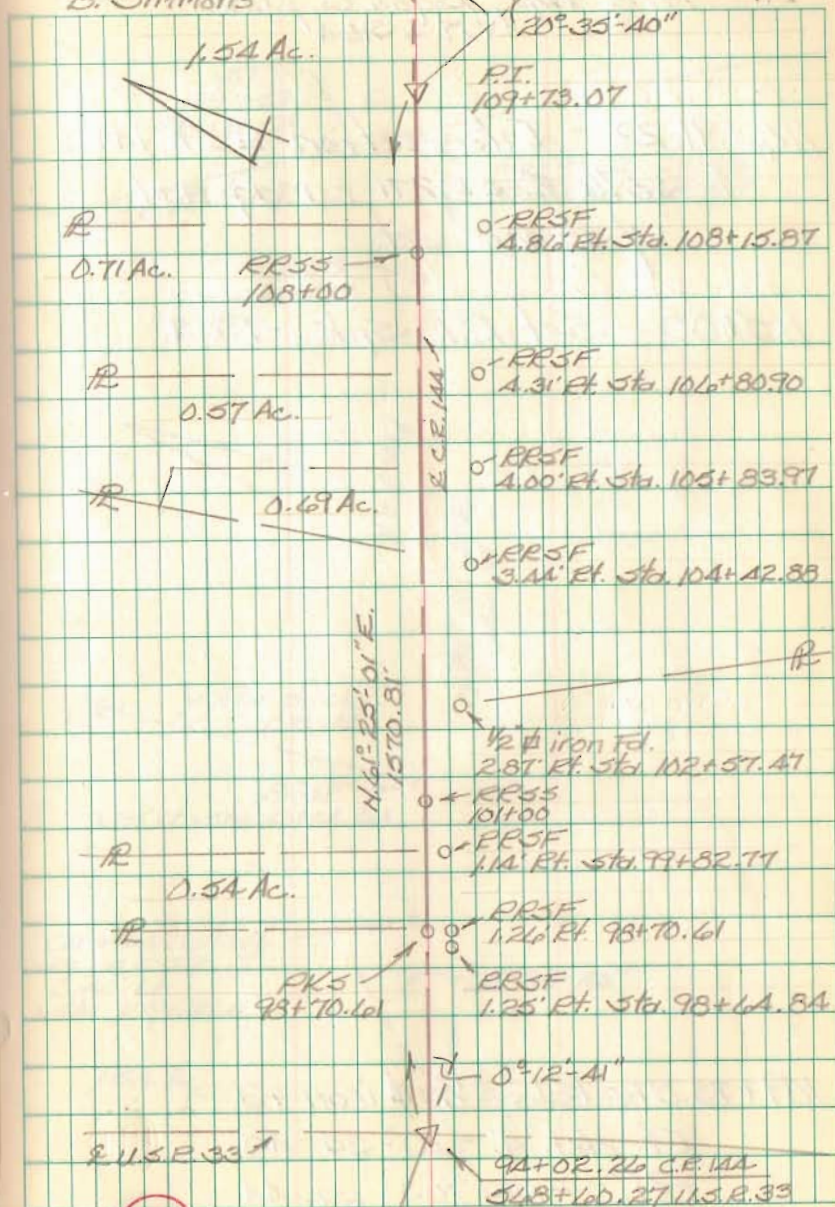 B. Simmons
20°-35'-40"
1.54 Ac.
P.I.
109+73.07
RRSF
4.86' Rt. Sta. 108+15.87
PL
0.71 Ac.
RRSS
108+00
RRSF
4.31' Rt. Sta. 106+80.90
PL
0.57 Ac.
℄ C.R. 144
RRSF
4.00' Rt. Sta. 105+83.97
PL
0.69 Ac.
RRSF
3.44' Rt. Sta. 104+42.88
N.61°-25'-01"E.
1570.81'
PL
1/2" ф iron Fd.
2.87' Rt. Sta. 102+57.47
RRSS
101+00
RRSF
1.14' Rt. Sta. 99+82.77
PL
0.54 Ac.
RRSF
1.26' Rt. 98+70.61
PL
PKS
98+70.61
RRSF
1.25' Rt. Sta. 98+64.84
0°-12'-41"
℄ U.S.R. 33
94+02.26 C.R. 144
568+60.27 U.S.R. 33